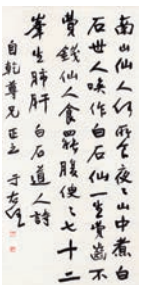 南山仙人何所食夜〻山中煮白
石世人喚作白石仙一生費齒不
費錢仙人食罷腹便〻七十二
峯生肺肝 白石道人詩
自乾尊兄正之 于右任